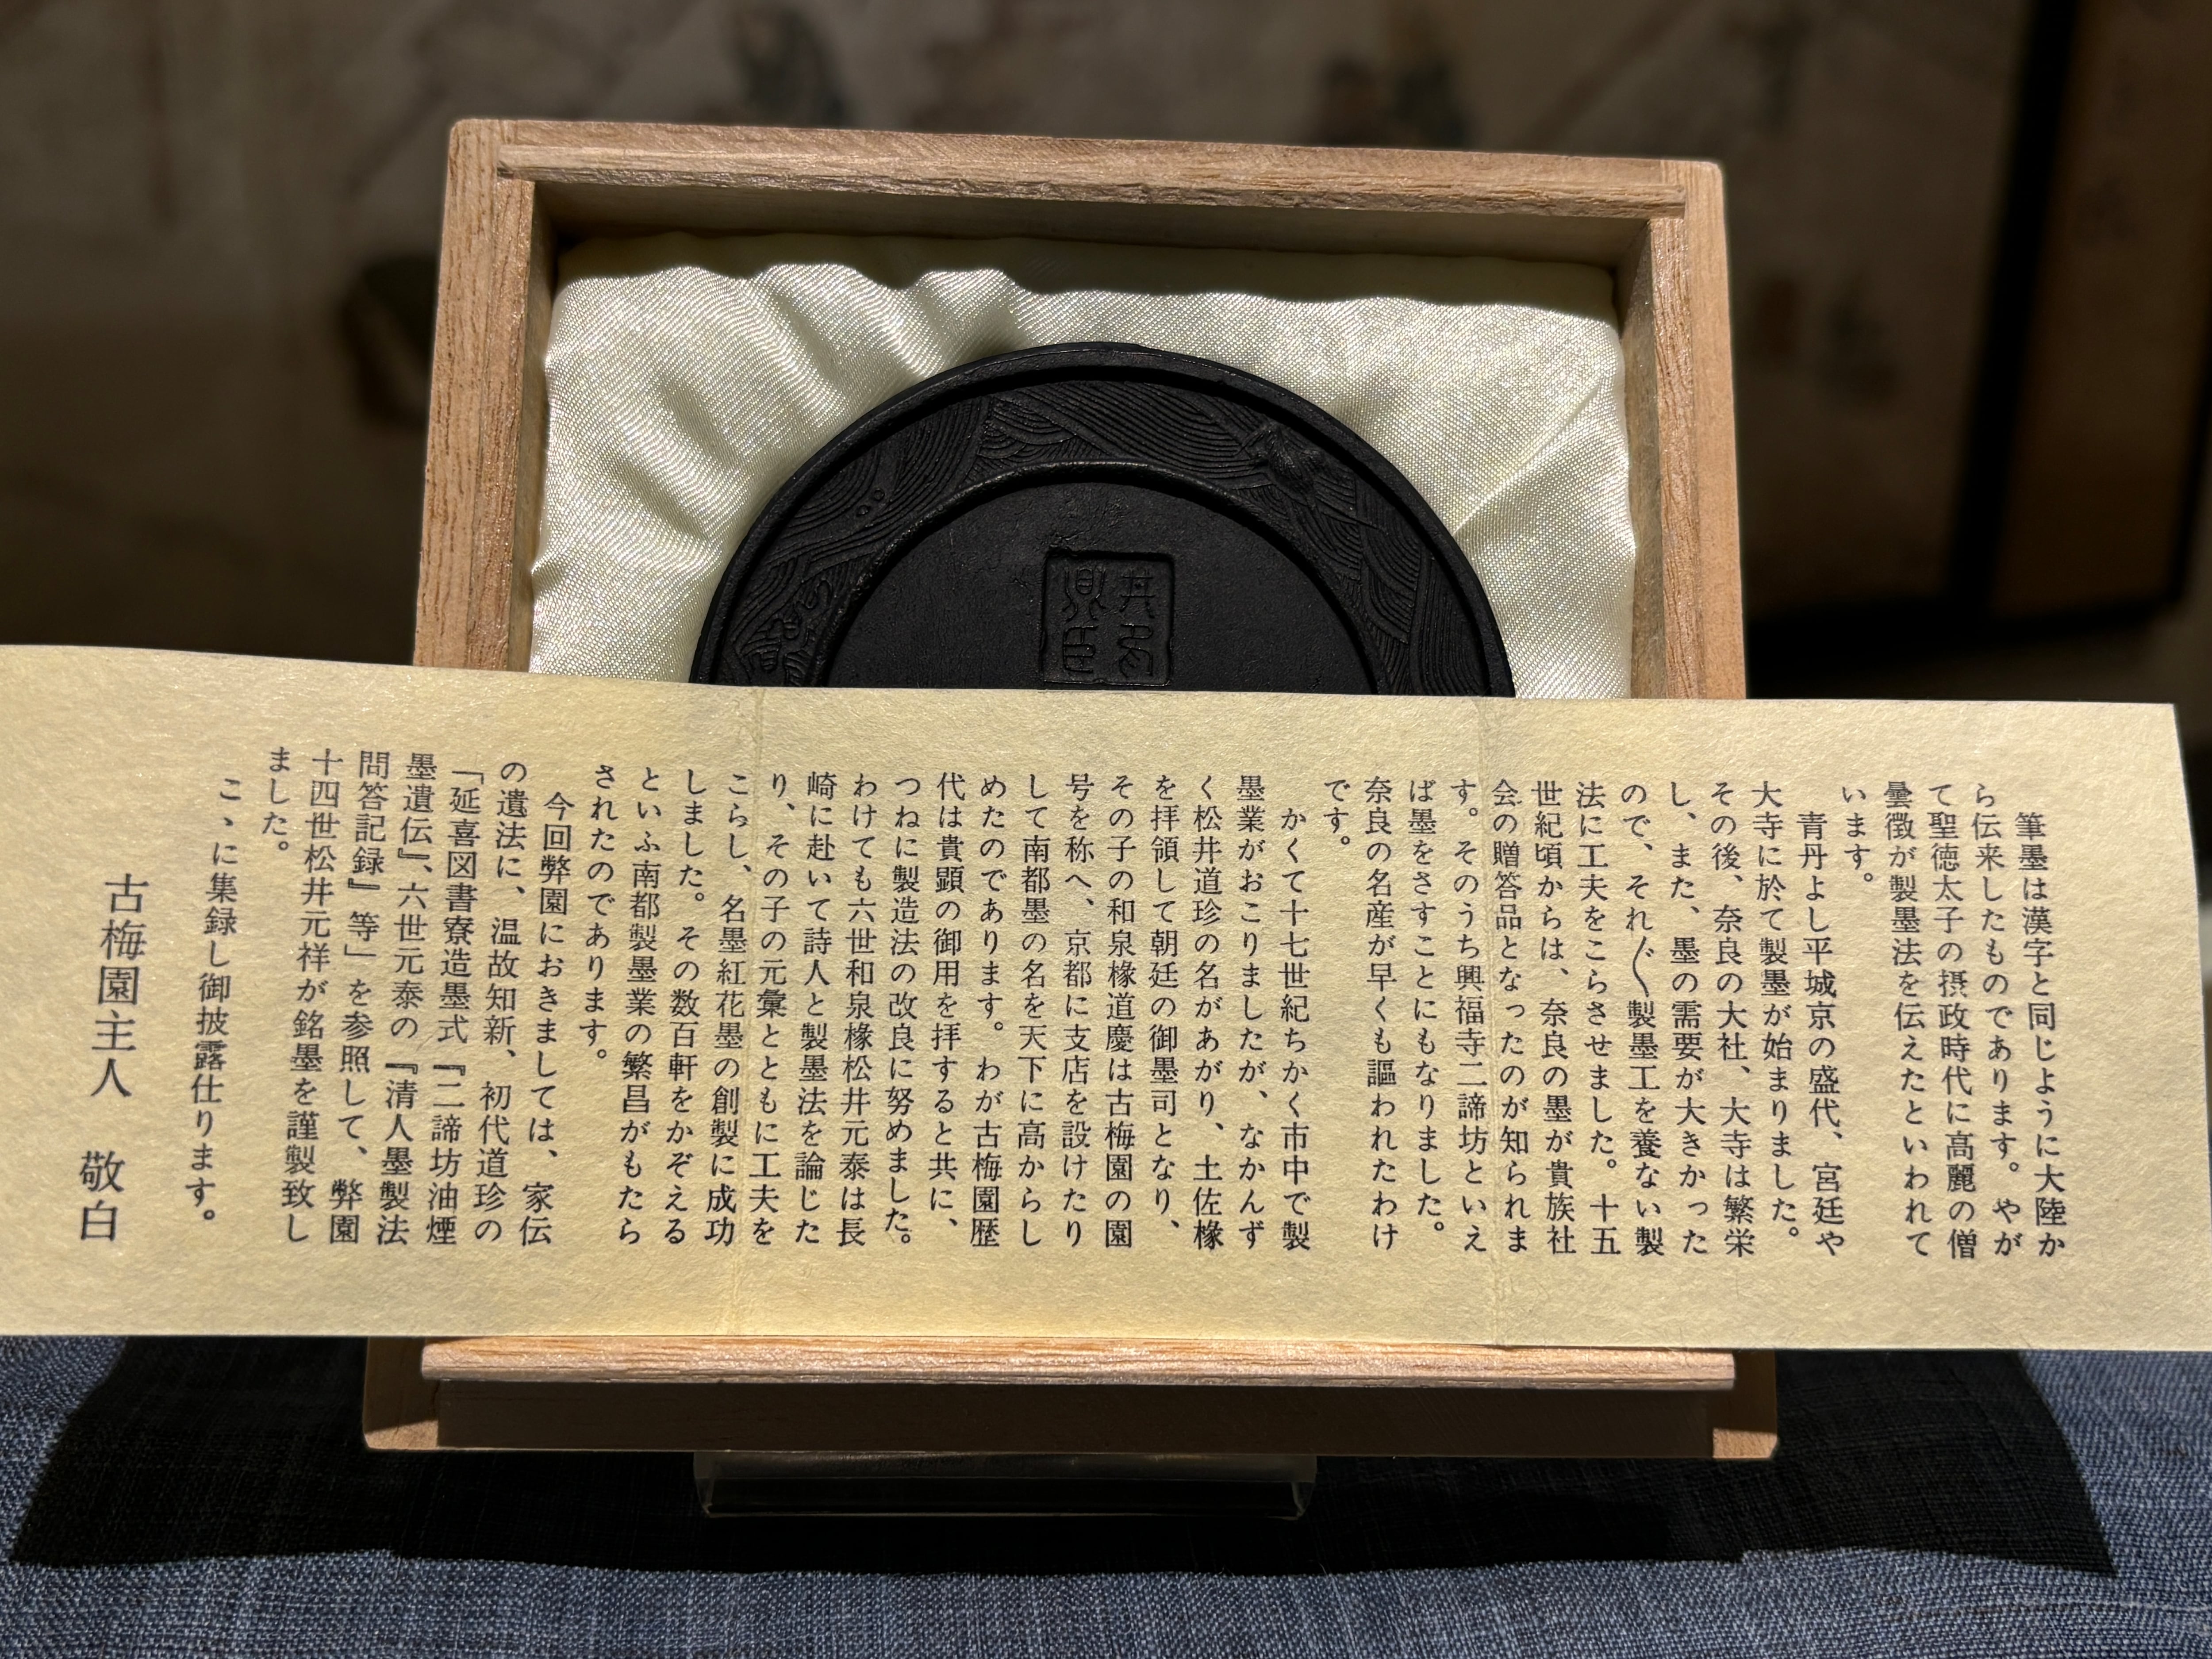 筆墨は漢字と同じように大陸か
ら伝来したものであります。やが
て聖徳太子の摂政時代に高麗の僧
曇徴が製墨法を伝えたといわれて
います。
青丹よし平城京の盛代、宮廷や
大寺に於て製墨が始まりました。
その後、奈良の大社、大寺は繁栄
し、また、墨の需要が大きかった
ので、それ〴〵製墨工を養ない製
法に工夫をこらさせました。十五
世紀頃からは、奈良の墨が貴族社
会の贈答品となったのが知られま
す。そのうち興福寺二諦坊といえ
ば墨をさすことにもなりました。
奈良の名産が早くも謳われたわけ
です。
かくて十七世紀ちかく市中で製
墨業がおこりましたが、なかんず
く松井道珍の名があがり、土佐椽
を拝領して朝廷の御墨司となり、
その子の和泉椽道慶は古梅園の園
号を称へ、京都に支店を設けたり
して南都墨の名を天下に高からし
めたのであります。わが古梅園歴
代は貴顕の御用を拝すると共に、
つねに製造法の改良に努めました。
わけても六世和泉椽松井元泰は長
崎に赴いて詩人と製墨法を論じた
り、その子の元彙とともに工夫を
こらし、名墨紅花墨の創製に成功
しました。その数百軒をかぞえる
といふ南都製墨業の繁昌がもたら
されたのであります。
今回弊園におきましては、家伝
の遺法に、温故知新、初代道珍の
「延喜図書寮造墨式『二諦坊油煙
墨遺伝』、六世元泰の『清人墨製法
問答記録』等」を参照して、弊園
十四世松井元祥が銘墨を謹製致し
ました。
こゝに集録し御披露仕ります。
古梅園主人 敬白